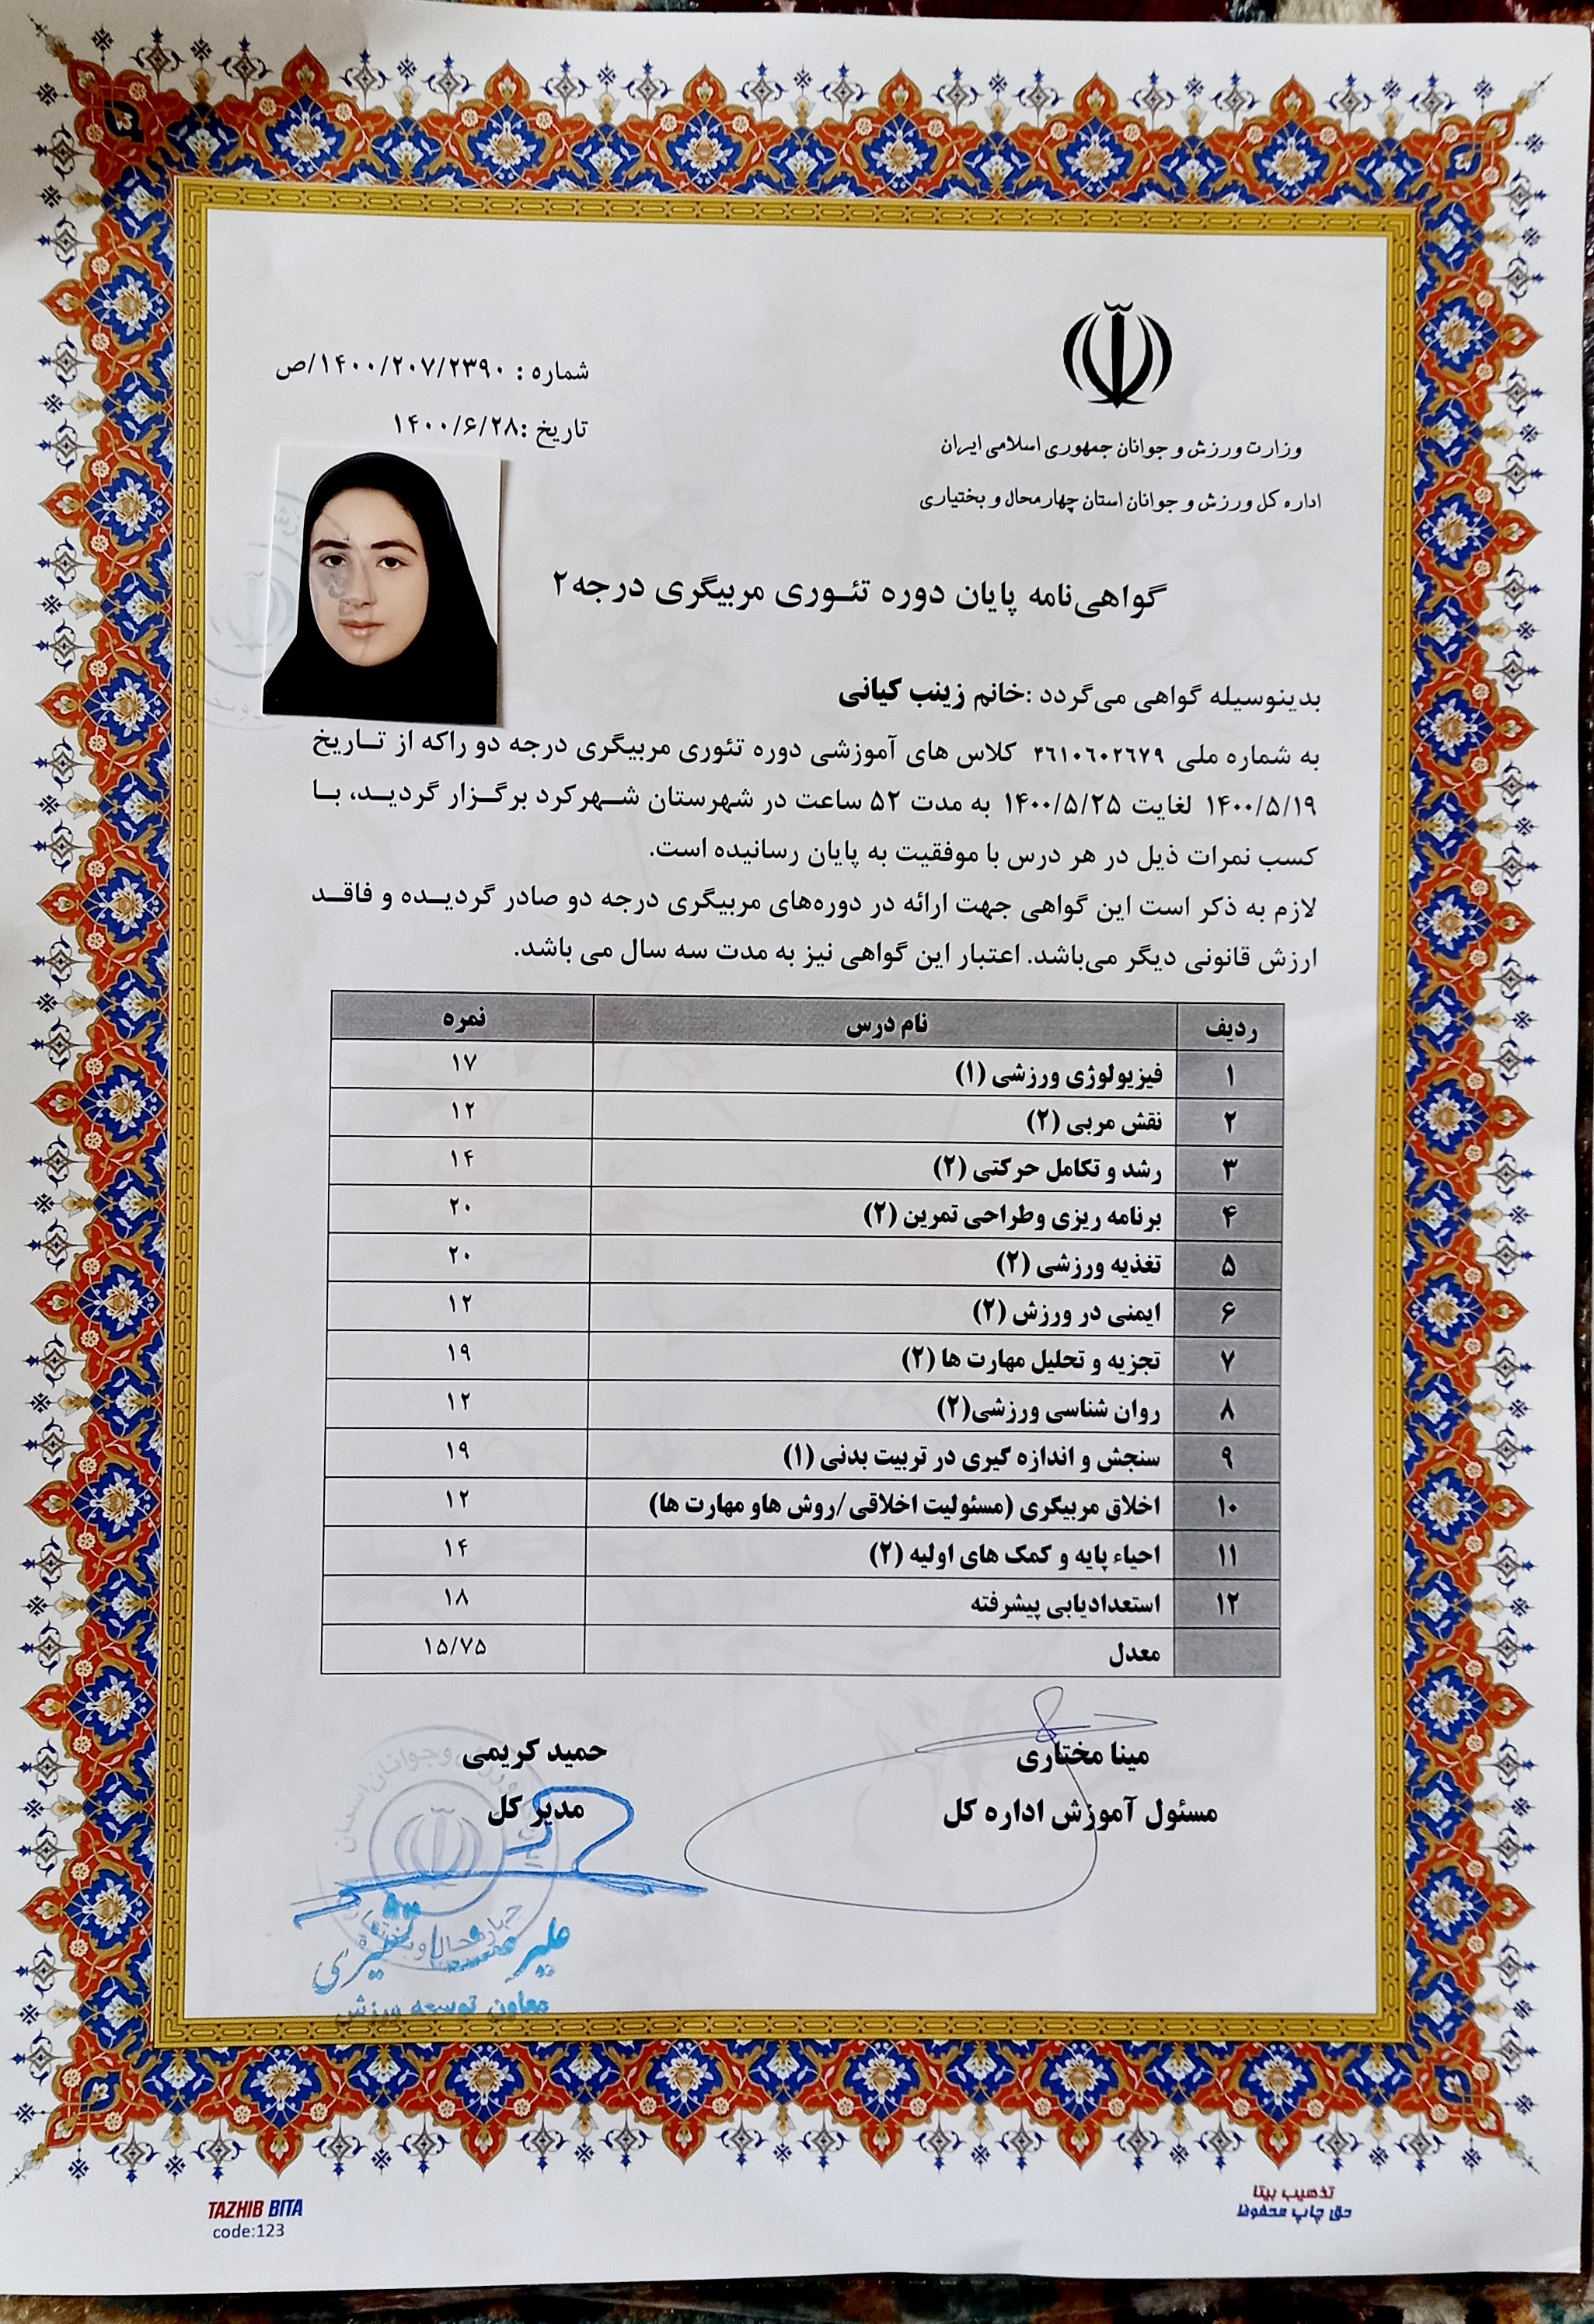 شماره : ۱۴۰۰/۲۰۷/۲۳۹۰/ص
تاریخ :۱۴۰۰/۶/۲۸
وزارت ورزش و جوانان جمهوری اسلامی ایران
اداره کل ورزش و جوانان استان چهارمحال و بختیاری
گواهی‌نامه پایان دوره تئـوری مربیگری درجه۲
بدینوسیله گواهی می‌گردد :خانم زینب کیانی
به شماره ملی ۴۶۱۰۶۰۲۶۷۹ کلاس های آموزشی دوره تئوری مربیگری درجه دو راکه از تـاریخ
۱۴۰۰/۵/۱۹ لغایت ۱۴۰۰/۵/۲۵ به مدت ۵۲ ساعت در شهرستان شـهرکرد برگـزار گردیـد، بـا
کسب نمرات ذیل در هر درس با موفقیت به پایان رسانیده است.
لازم به ذکر است این گواهی جهت ارائه در دوره‌های مربیگری درجه دو صادر گردیـده و فاقـد
ارزش قانونی دیگر می‌باشد. اعتبار این گواهی نیز به مدت سه سال می باشد.
ردیف نام درس نمره
۱ فیزیولوژی ورزشی (۱) ۱۷
۲ نقش مربی (۲) ۱۲
۳ رشد و تکامل حرکتی (۲) ۱۴
۴ برنامه ریزی وطراحی تمرین (۲) ۲۰
۵ تغذیه ورزشی (۲) ۲۰
۶ ایمنی در ورزش (۲) ۱۲
۷ تجزیه و تحلیل مهارت ها (۲) ۱۹
۸ روان شناسی ورزشی(۲) ۱۲
۹ سنجش و اندازه گیری در تربیت بدنی (۱) ۱۹
۱۰ اخلاق مربیگری (مسئولیت اخلاقی /روش هاو مهارت ها) ۱۲
۱۱ احیاء پایه و کمک های اولیه (۲) ۱۴
۱۲ استعدادیابی پیشرفته ۱۸
معدل ۱۵/۷۵
مینا مختاری
مسئول آموزش اداره کل
حمید کریمی
مدیر کل
معاون توسعه ورزش
تذهیب بیتا
حق چاپ محفوظ
TAZHIB BITA
code:123